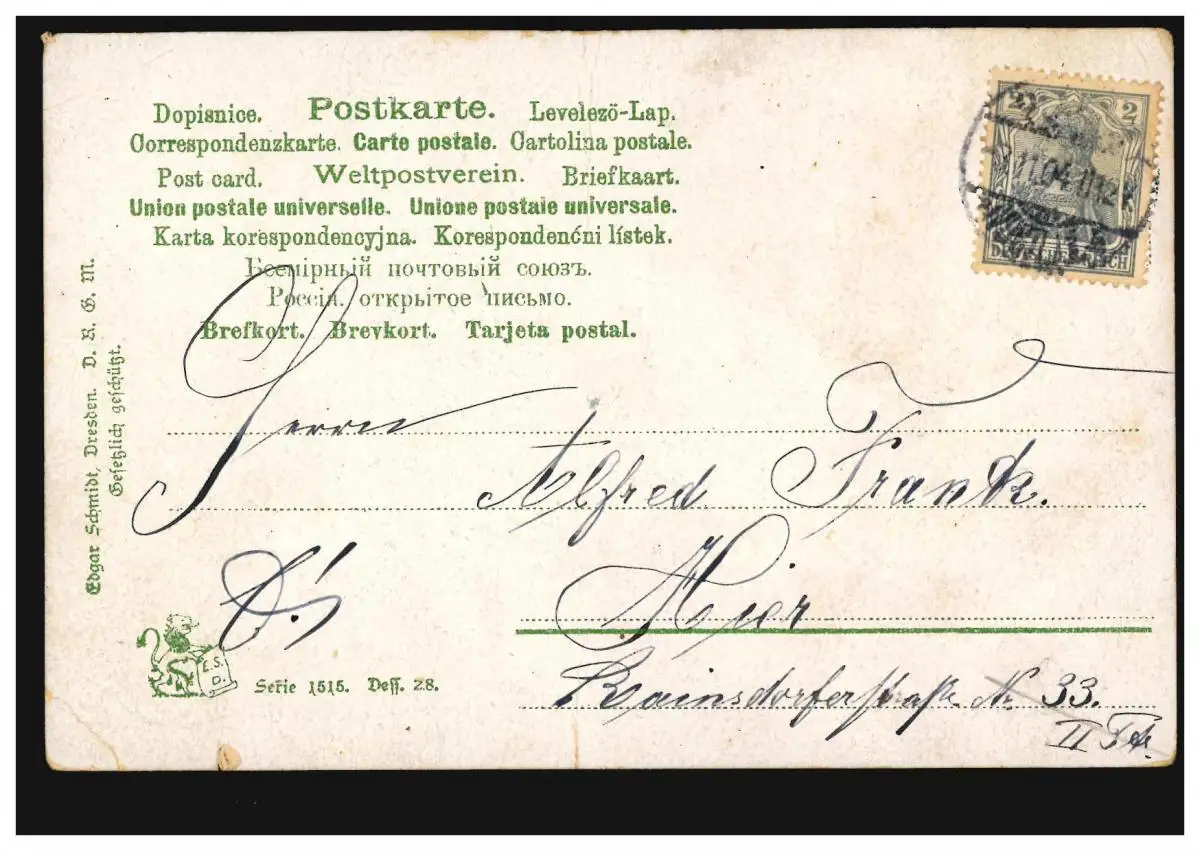 Dopisnice. Postkarte. Levelező-Lap.
Correspondenzkarte. Carte postale. Cartolina postale.
Post card. Weltpostverein. Briefkaart.
Union postale universelle. Unione postale universale.
Karta korespondencyjna. Korespondenční lístek.
Всемірный почтовый союзъ.
Россія. открытое письмо.
Brefkort. Brevkort. Tarjeta postal.
2 2
11.04. 11-12 V.
DEUTSCHES REICH
Edgar Schmidt, Dresden. D. R. G. M.
Gesetzlich geschützt.
Herrn
Alfred Frank.
Hier
Bainsdorferstraße Nr 33.
II
E.S.
D.
Serie 1515. Dess. 28.